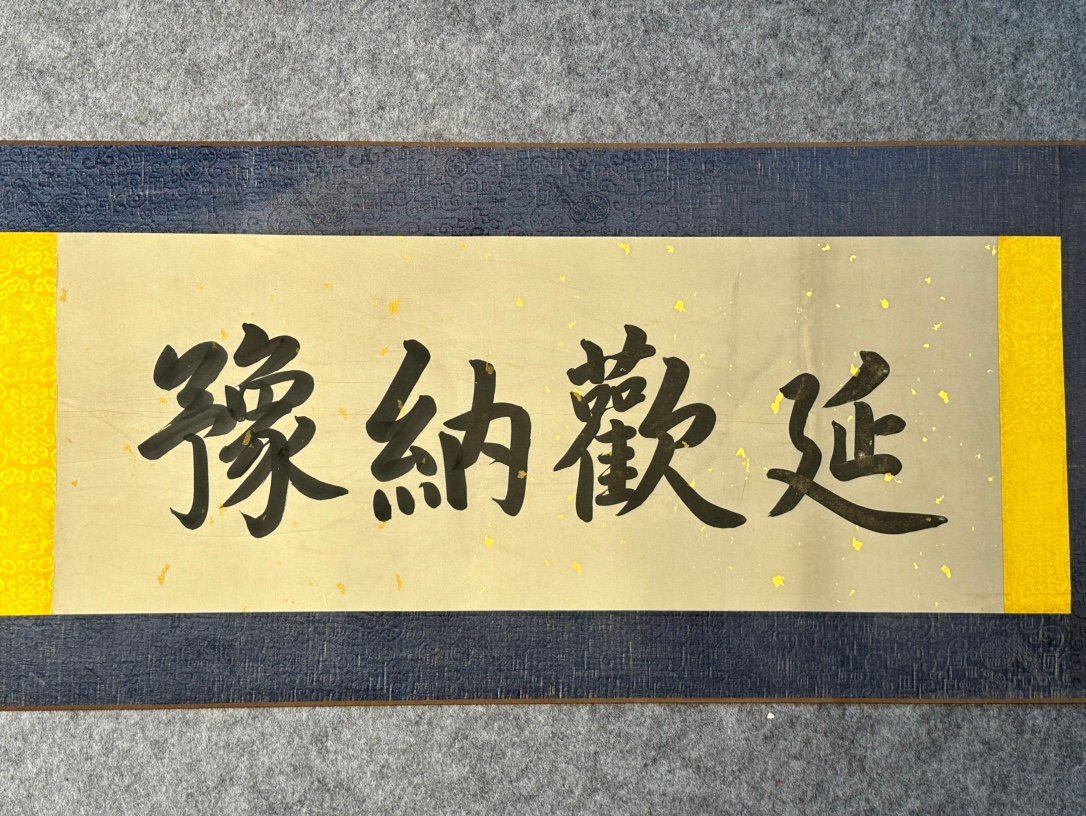 延歡納豫